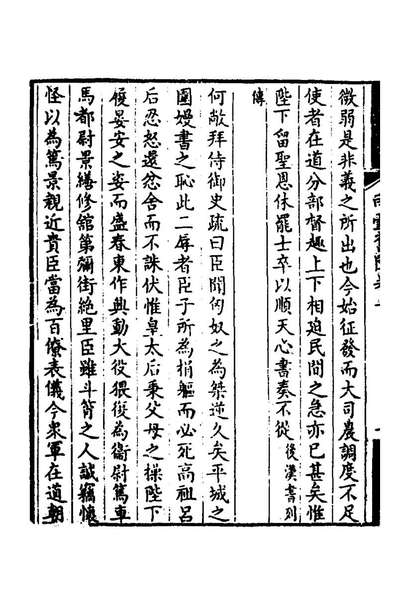 微弱是非義之所出也今始征發而大司農調度不足
使者在道分部督趣上下相迫民間之急亦已甚矣惟
陛下留聖恩休罷士卒以順天心書奏不從後漢書列
傳
何敞拜侍御史疏曰臣聞匈奴之為桀逆久矣平城之
圍嫚書之恥此二辱者臣子所為捐軀而必死高祖呂
后忍怒還忿舍而不誅伏惟皇太后秉父母之操陛下
履晏安之姿而盛春東作興動大役猥復為衞尉篤車
馬都尉景繕修舘第彌街絶里臣雖斗筲之人誠竊懷
怪以為篤景親近貴臣當為百僚表儀今衆軍在道朝